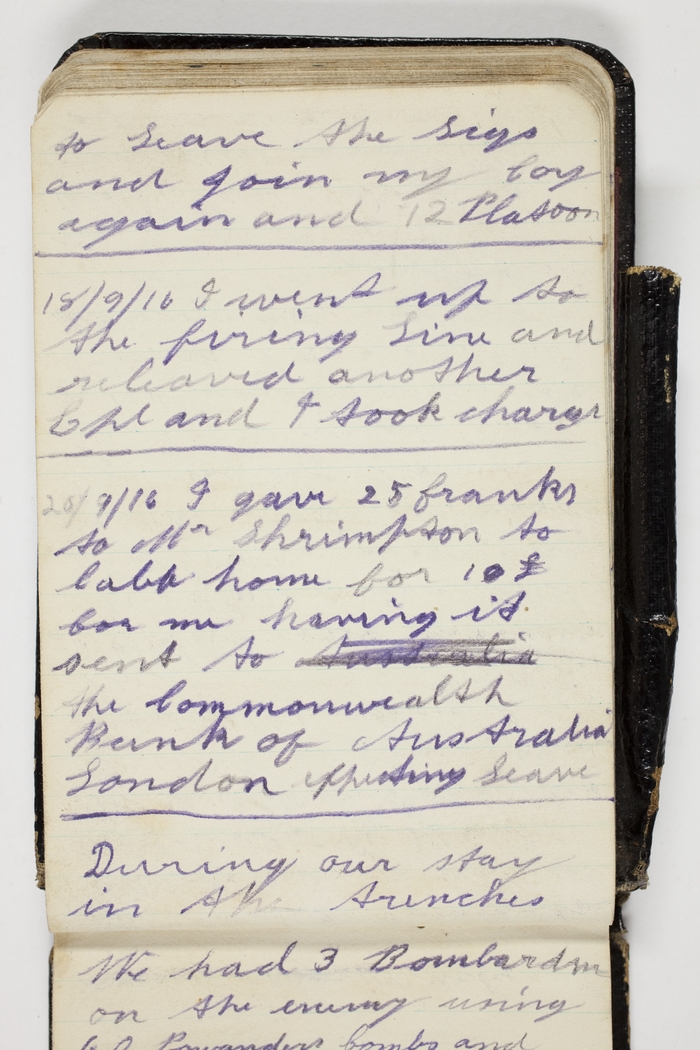 to Leave the Sigs
and join my Coy
again and 12 Platoon
18/9/16 I went up to
the firing Line and
releaved another
Cpl and I took charge
20/9/16 I gave 25 franks
to Mr Shrimpton to
Cabk home for 10 £
for me having it
sent to Australia
the Commonwealth
Bank of Australia
London expecting Leave
During our stay
in the trenches
We had 3 Bombardm
on the enemy using
60 Pounders bombs and